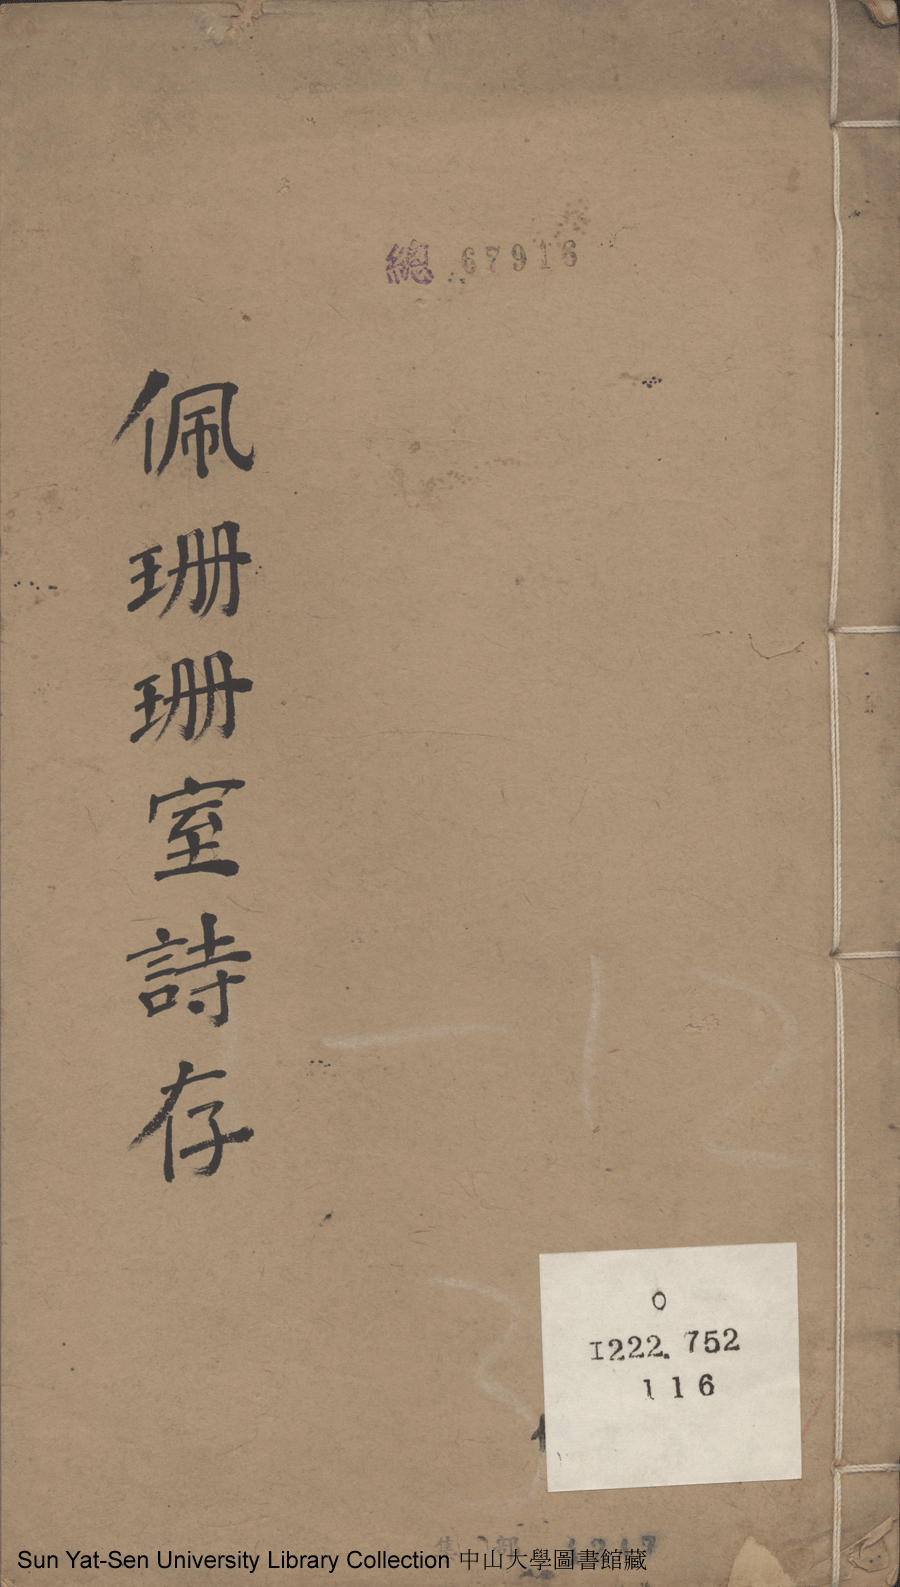 總 67916
佩珊珊室詩存
O
I222.752
116
Sun Yat-Sen University Library Collection 中山大學圖書館藏